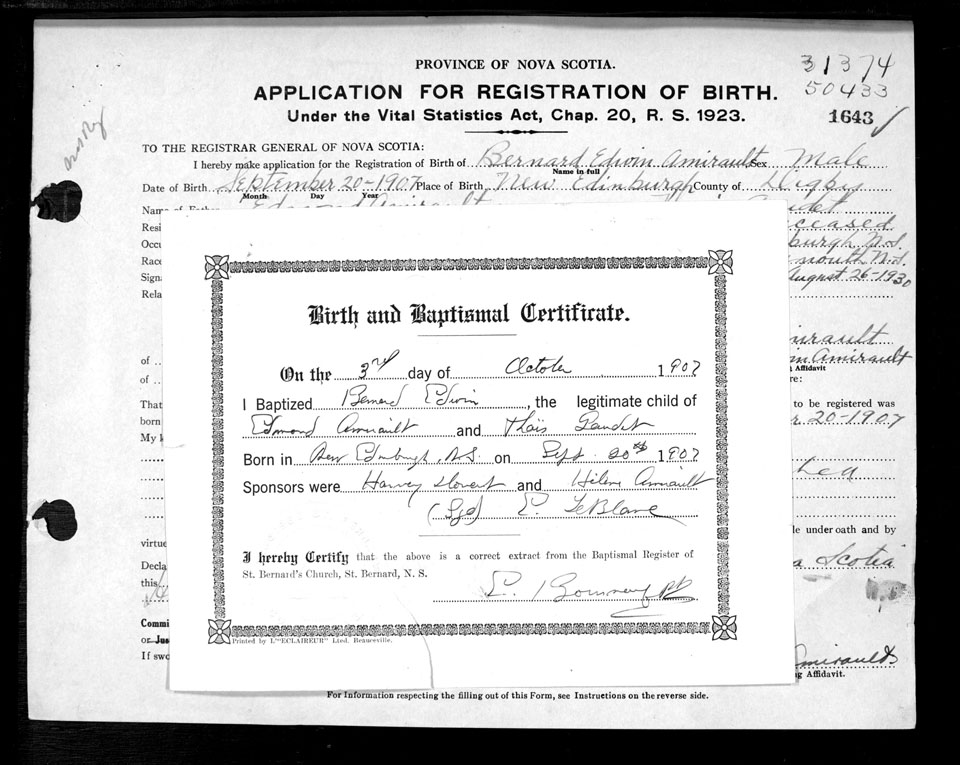 PROVINCE OF NOVA SCOTIA.
31374
50433
APPLICATION FOR REGISTRATION OF BIRTH.
1643
Under the Vital Statistics Act, Chap. 20, R. S. 1923.
TO THE REGISTRAR GENERAL OF NOVA SCOTIA:
I hereby make application for the Registration of Birth of Bernard Edwin Amirault Sex Male
Name in full
Date of Birth September 20-1907 Place of Birth New Edinburgh County of Digby
Month Day Year
Edmond Amirault
Resi
Occu
Race
Signa
Rela
August 26-1930
Birth and Baptismal Certificate.
On the 3rd day of October 1907
I Baptized Bernard Edwin, the legitimate child of
Edmond Amirault and Thäis Gaudet
Born in New Edinburgh, N.S. on Sept. 20th 1907
Sponsors were Harvey and Hélène Amirault
(Sgd) E. LeBlanc
I hereby Certify that the above is a correct extract from the Baptismal Register of
St. Bernard's Church, St. Bernard, N. S.
Printed by L'"ECLAIREUR" Lted. Beauceville.
of
Amirault
g Affidavit
of
re:
That
to be registered was
born
r. 20-1907
My k
le under oath and by
virtue
Decla
a Scotia
this
Commi
or Jus
If swo
Amirault
ng Affidavit.
For Information respecting the filling out of this Form, see Instructions on the reverse side.